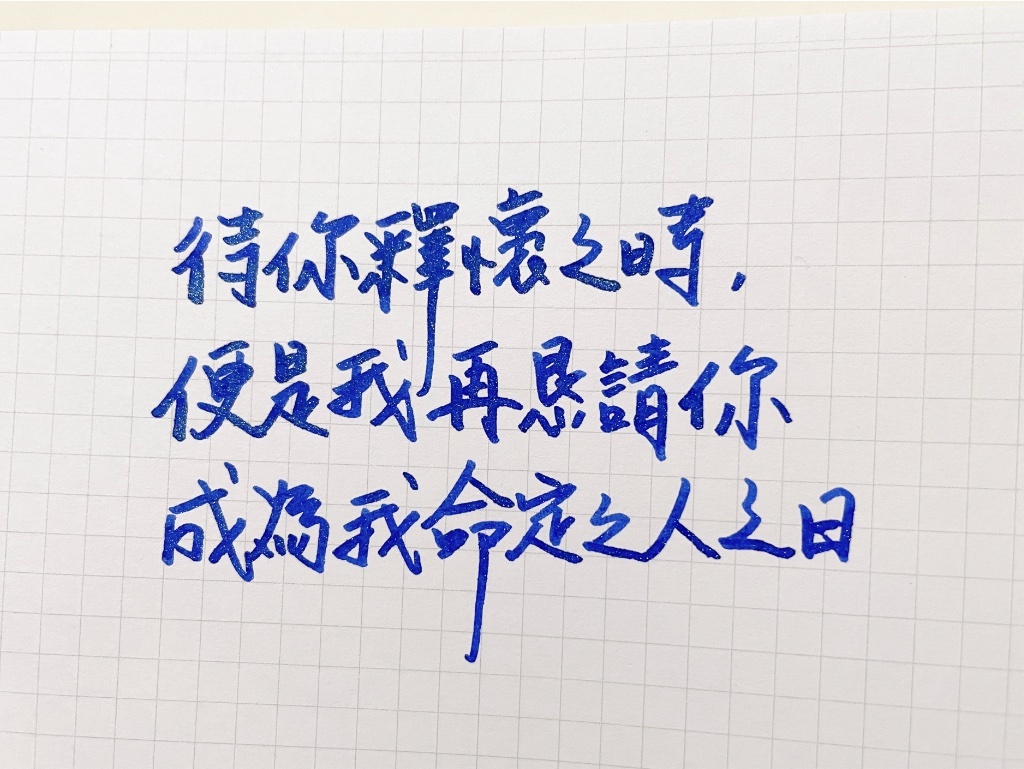 待你釋懷之時,
便是我再恳請你
成為我命定之人之日